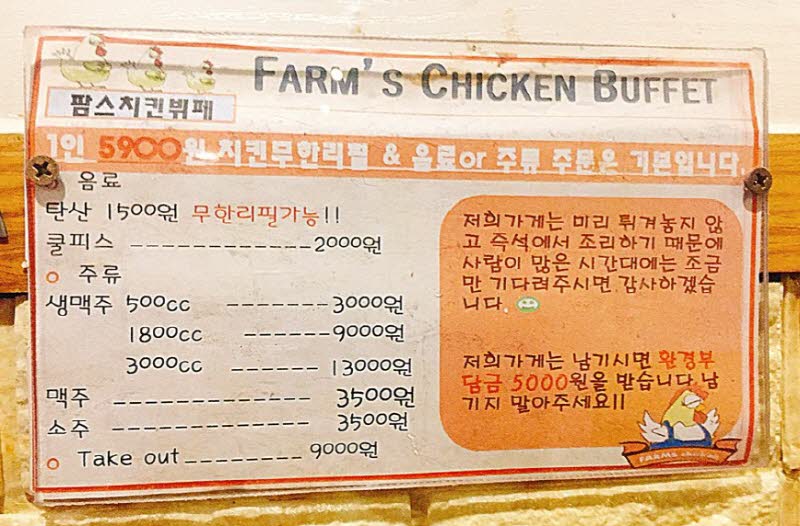 FARM'S CHICKEN BUFFET
팜스치킨뷔페
1인 5900원 치킨무한리필 & 음료or 주류 주문은 기본입니다.
음료
탄산 1500원 무한리필가능!!
쿨피스 ------------2000원
o 주류
생맥주 500cc -------3000원
1800cc ------9000원
3000cc ------ 13000원
맥주 ------------- 3500원
소주 ------------- 3500원
o Take out________ 9000원
저희가게는 미리 튀겨놓지 않
고 즉석에서 조리하기 때문에
사람이 많은 시간대에는 조금
만 기다려주시면 감사하겠습
니다.
저희가게는 남기시면 환경부
담금 5000원을 받습니다 남
기지 말아주세요!!
FARMs chicken